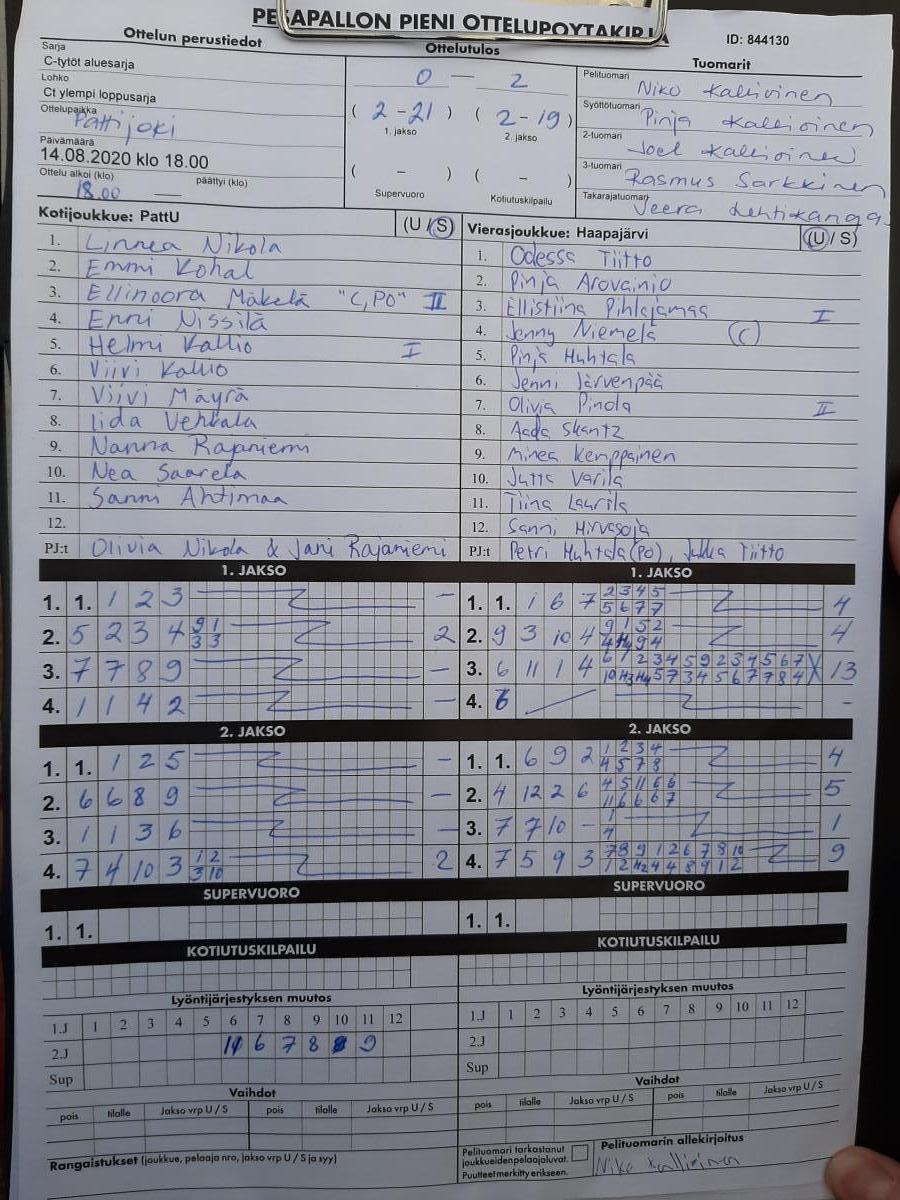 PESÄPALLON PIENI OTTELUPÖYTÄKIRJA
ID: 844130
Ottelun perustiedot
Sarja
C-tytöt aluesarja
Lohko
Ct ylempi loppusarja
Ottelupaikka
Pattijoki
Päivämäärä
14.08.2020 klo 18.00
Ottelu alkoi (klo) päättyi (klo)
18.00
Ottelutulos
0 — 2
( 2 - 21 ) ( 2 - 19 )
1. jakso 2. jakso
( - ) ( - )
Supervuoro Kotiutuskilpailu
Tuomarit
Pelituomari Niko Kallioinen
Syöttötuomari Pinja Kallioinen
2-tuomari Joel Kallioinen
3-tuomari Rasmus Sarkkinen
Takarajatuomari Veera Lehtikangas
Kotijoukkue: PattU (U / S)
1. Linnea Nikola
2. Emmi Kohal
3. Ellinoora Mäkelä "C, PO" II
4. Enni Nissilä
5. Helmi Kallio I
6. Viivi Kallio
7. Viivi Mäyrä
8. Iida Vehkala
9. Nanna Rajaniemi
10. Nea Saarela
11. Sanni Ahtimaa
12.
PJ:t Olivia Nikola & Jani Rajaniemi
Vierasjoukkue: Haapajärvi (U / S)
1. Odessa Tiitto
2. Pinja Arovainio
3. Ellistiina Pihlajamaa I
4. Jenny Niemelä (C)
5. Pinja Huhtala
6. Jenni Järvenpää
7. Olivia Pinola II
8. Aada Skantz
9. Minea Kemppainen
10. Jutta Varila
11. Tiina Laurila
12. Sanni Hirvasoja
PJ:t Petri Huhtala (PO), Jukka Tiitto
1. JAKSO
1. 1. 1 2 3 -
2. 5 2 3 4 9 1 2
3 3
3. 7 7 8 9 -
4. 1 1 4 2 -
1. JAKSO
1. 1. 1 6 7 2 3 4 5 4
5 6 7 7
2. 9 3 10 4 9 1 5 2 4
3. 6 11 1 4 6 1 2 3 4 5 9 2 3 4 5 6 7 13
4. 6 -
2. JAKSO
1. 1. 1 2 5 -
2. 6 6 8 9 -
3. 1 1 3 6 -
4. 7 4 10 3 1 2 2
3 10
2. JAKSO
1. 1. 6 9 2 1 2 3 4 4
4 5 7 8
2. 4 12 2 6 4 5 11 6 6 5
11 6 6 6 7
3. 7 7 10 - 1 1
4. 7 5 9 3 7 8 9 1 2 6 7 8 10 9
SUPERVUORO
1. 1.
SUPERVUORO
1. 1.
KOTIUTUSKILPAILU
KOTIUTUSKILPAILU
Lyöntijärjestyksen muutos
1.J 1 2 3 4 5 6 7 8 9 10 11 12
2.J 6 7 8 9
Sup
Lyöntijärjestyksen muutos
1.J 1 2 3 4 5 6 7 8 9 10 11 12
2.J
Sup
Vaihdot
pois tilalle Jakso vrp U / S pois tilalle Jakso vrp U / S
Vaihdot
pois tilalle Jakso vrp U / S pois tilalle Jakso vrp U / S
Rangaistukset (joukkue, pelaaja nro, jakso vrp U / S ja syy)
Pelituomari tarkastanut
joukkueiden pelaajaluvat.
Puutteet merkitty erikseen.
Pelituomarin allekirjoitus
Niko Kallioinen